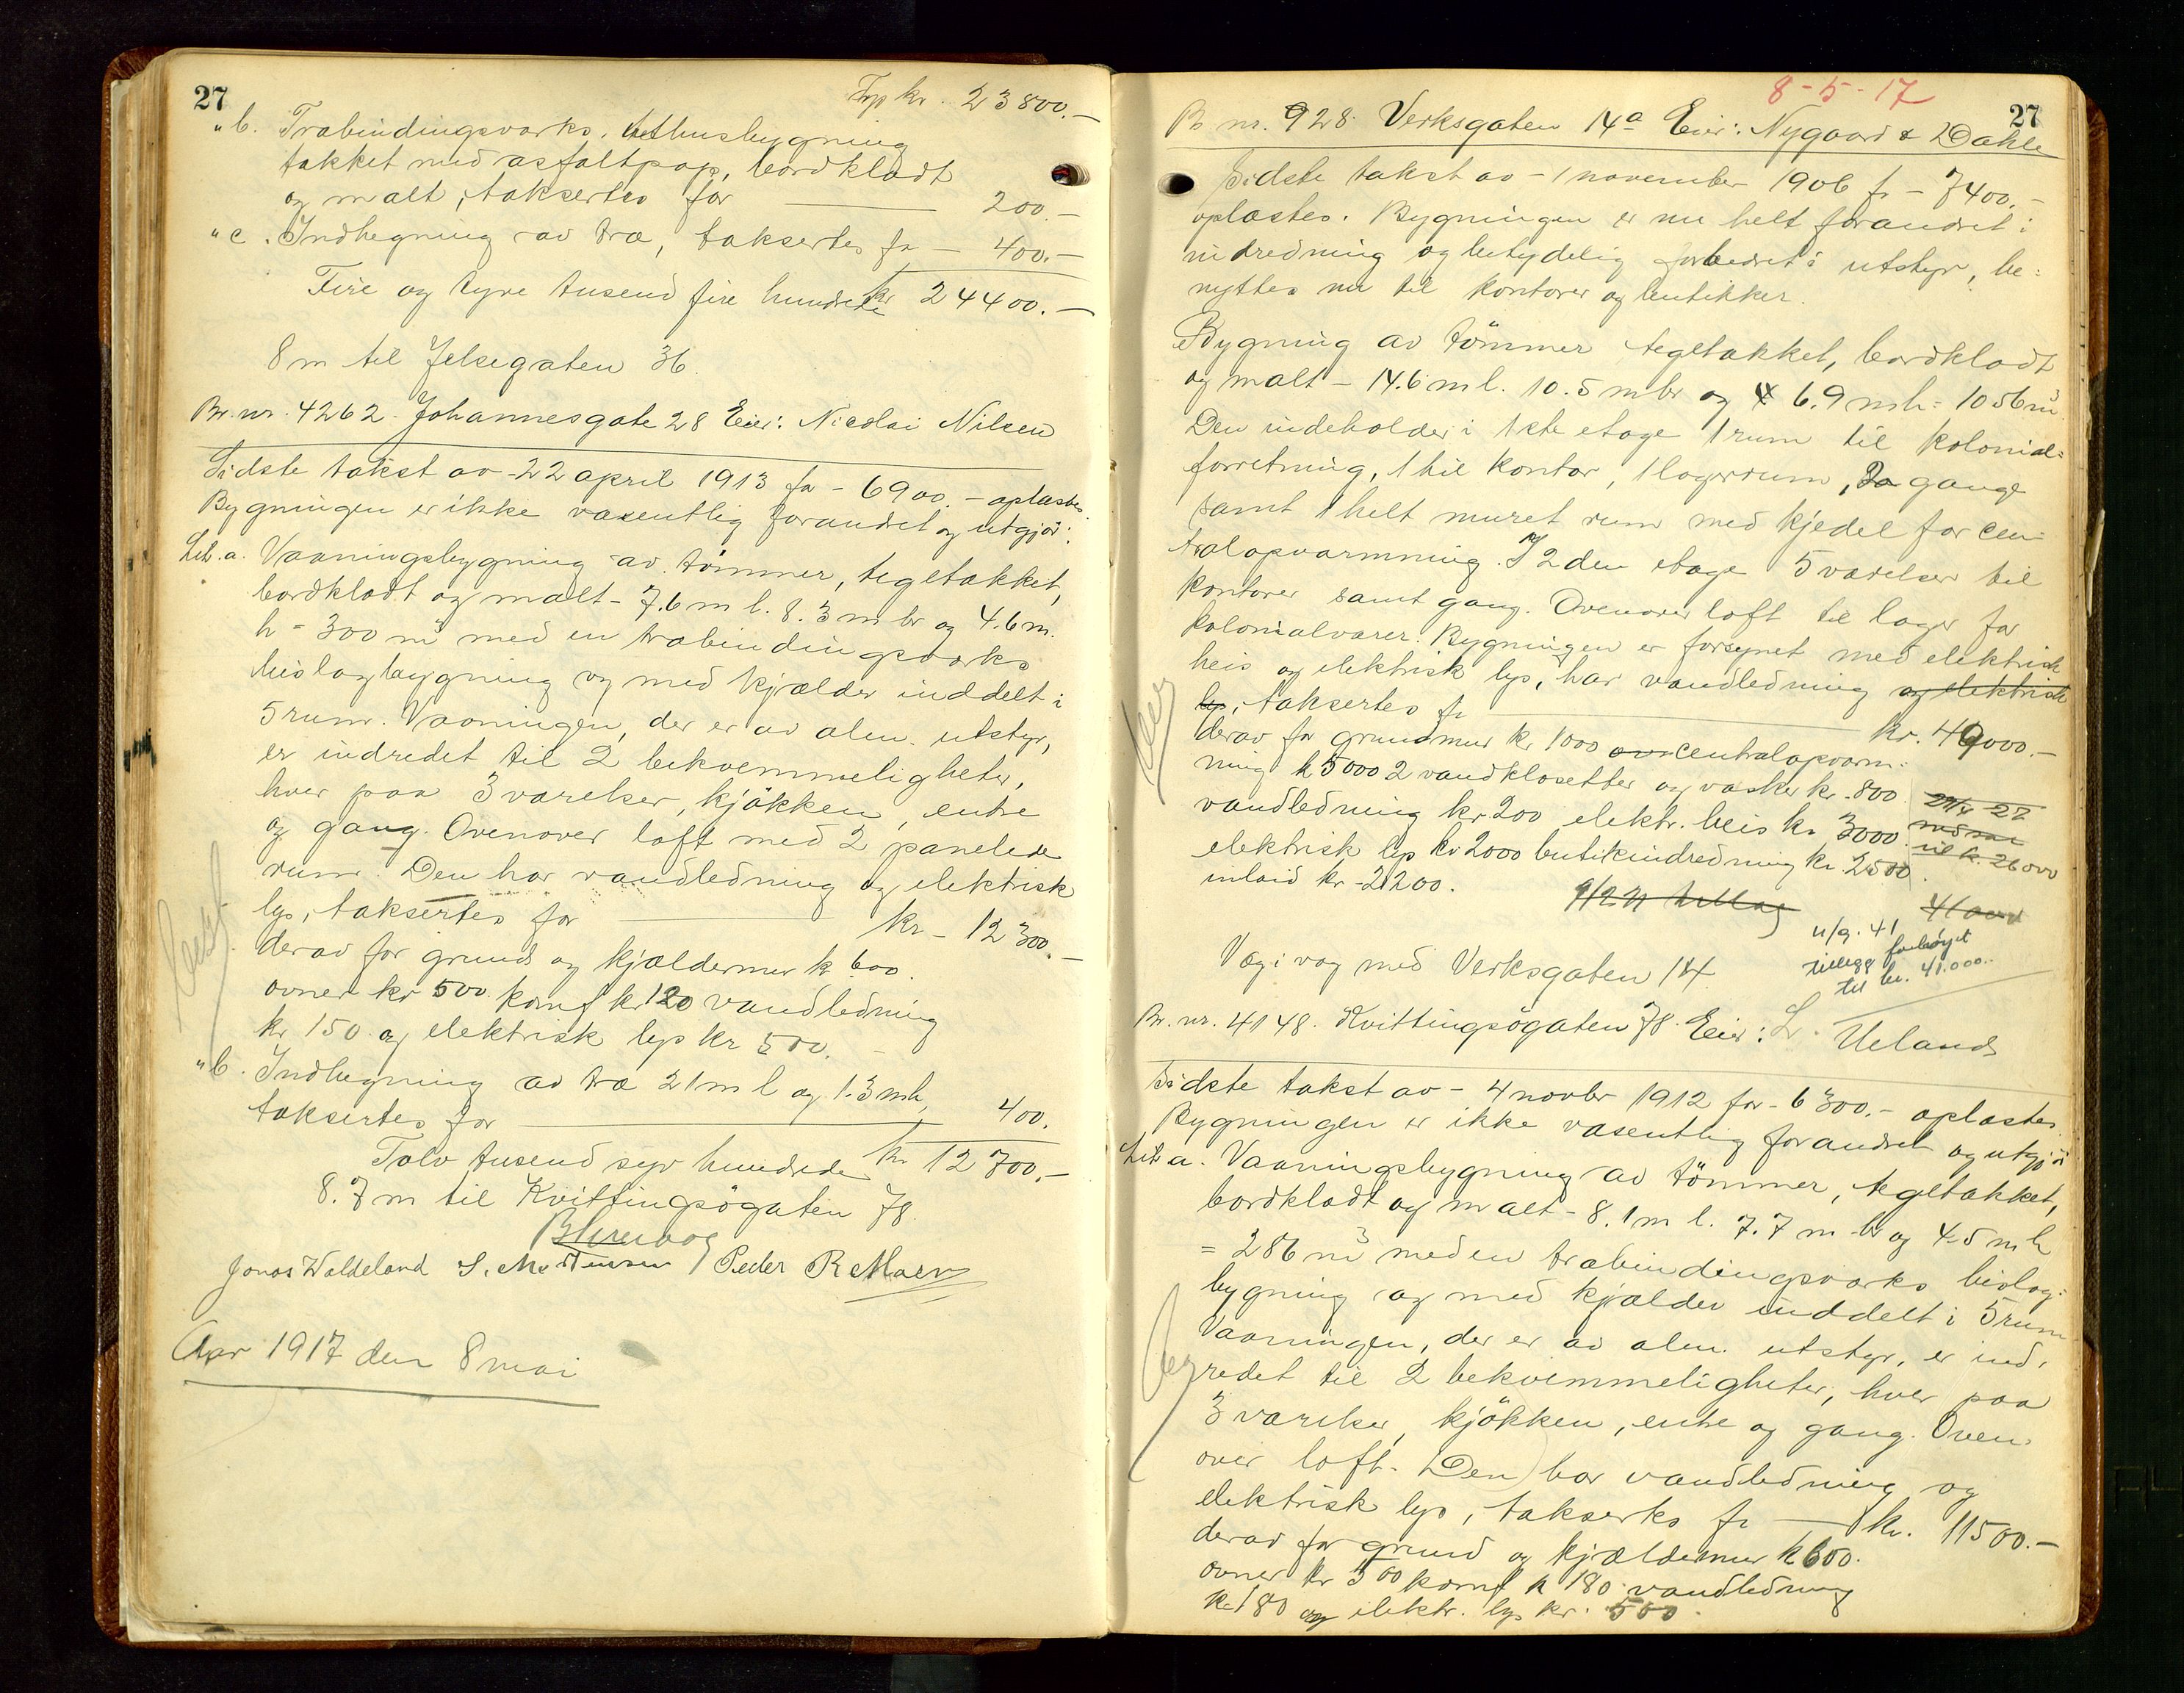 27
Trp kr. 23800.-
"b. Træbindingsværks. uthusbygning
tækket med asfaltpap, bordklædt
og malt, takseres for 200.-
"c. Indhegning av træ, takseres fr - 400.-
Fire og tyve tusend fire hundrede kr 24400.-
8 m til Jelsegaten 36.
Br. nr. 4262. Johannesgate 28 Eier: Nicolai Nilsen
Sidste takst av - 22 april 1913 fr - 6900.- oplæstes.
Bygningen er ikke væsentlig forandret og utgjør:
Litr. a. Vaaningsbygning av tømmer, tegltækket,
bordklædt og malt - 7.6 m l. 8.3 m br og 4.6 m.
h = 300 m³ med en træbindingsværks
bislagbygning og med kjælder inddelt i
5 rum. Vaaningen, der er av alm. utstyr,
er indredet til 2 bekvemmeligheter,
hver paa 3 værelser, kjøkken, entre
og gang. Ovenover loft med 2 panelede
rum. Den har vandledning og elektrisk
lys, takseres for kr - 12300.-
derav for grund og kjældermur kr 600.
ovner kr 500. komf kr 120 vandledning
kr 150 og elektrisk lys kr 500.-
"b. Indhegning av træ 21 m l og 1.3 m h,
takseres for 400.
Tolv tusend syv hundrede kr 12700.-
8.7 m til Kvittingsøgaten 78.
Jonas Waldeland S. Mortensen Peder R Mæn
Aar 1917 den 8 mai
8-5-17
27
Br nr. 928. Verksgaten 14a Eier: Nygaard & Dahle
Sidste takst av - 1 november 1906 fr - 7400.-
oplæstes. Bygningen er nu helt forandret i
indredning og betydelig forbedret i utstyr, be=
nyttes nu til kontorer og butikker.
Bygning av tømmer tegltækket, bordklædt
og malt - 14.6 m l. 10.5 m br og 6.9 m h = 1056 m³.
Den indeholder i 1ste etage 1 rum til kolonial=
forretning, 1 til kontor, 1 lagerrum, 2 gange
samt 1 helt muret rum med kjedel for cen=
tralopvarmning. I 2den etage 5 værelser til
kontorer samt gang. Ovenover loft til lager for
kolonialvarer. Bygningen er forsynet med elektrisk
heis og elektrisk lys, har vandledning og elektrisk
lys, takseres fr kr. 40000.-
derav for grundmur kr 1000 centralopvarm=
ning kr 5000 2 vandklosetter og vasker kr. 800.
vandledning kr 200 elektr. heis kr 3000.
elektrisk lys kr 2000 butikindredning kr 2500.
inlaid kr - 2200.
til kr. 26000
11/9. 41
tillegg forhøyet
til kr. 41.000.-
Væg i væg med Verksgaten 14.
Br. nr. 4148. Kvittingsøgaten 78. Eier: L. Ueland
Sidste takst av - 4 novbr 1912 for - 6300.- oplæstes
Bygningen er ikke væsentlig forandret og utgjør
Litr a. Vaaningsbygning av tømmer, tegltækket,
bordklædt og malt - 8.1 m l. 7.7 m br og 4.5 m h
= 286 m³ med en træbindingsværks bislag=
bygning og med kjælder inddelt i 5 rum
Vaaningen, der er av alm. utstyr, er ind=
redet til 2 bekvemmeligheter, hver paa
3 værelser, kjøkken, entre og gang. Oven
over loft. Den har vandledning og
elektrisk lys, takseres fr kr. 11500.-
derav for grund og kjældermur kr 600.
ovner kr 500 komf kr 180 vandledning
kr 180 og elektr. lys kr. 500.